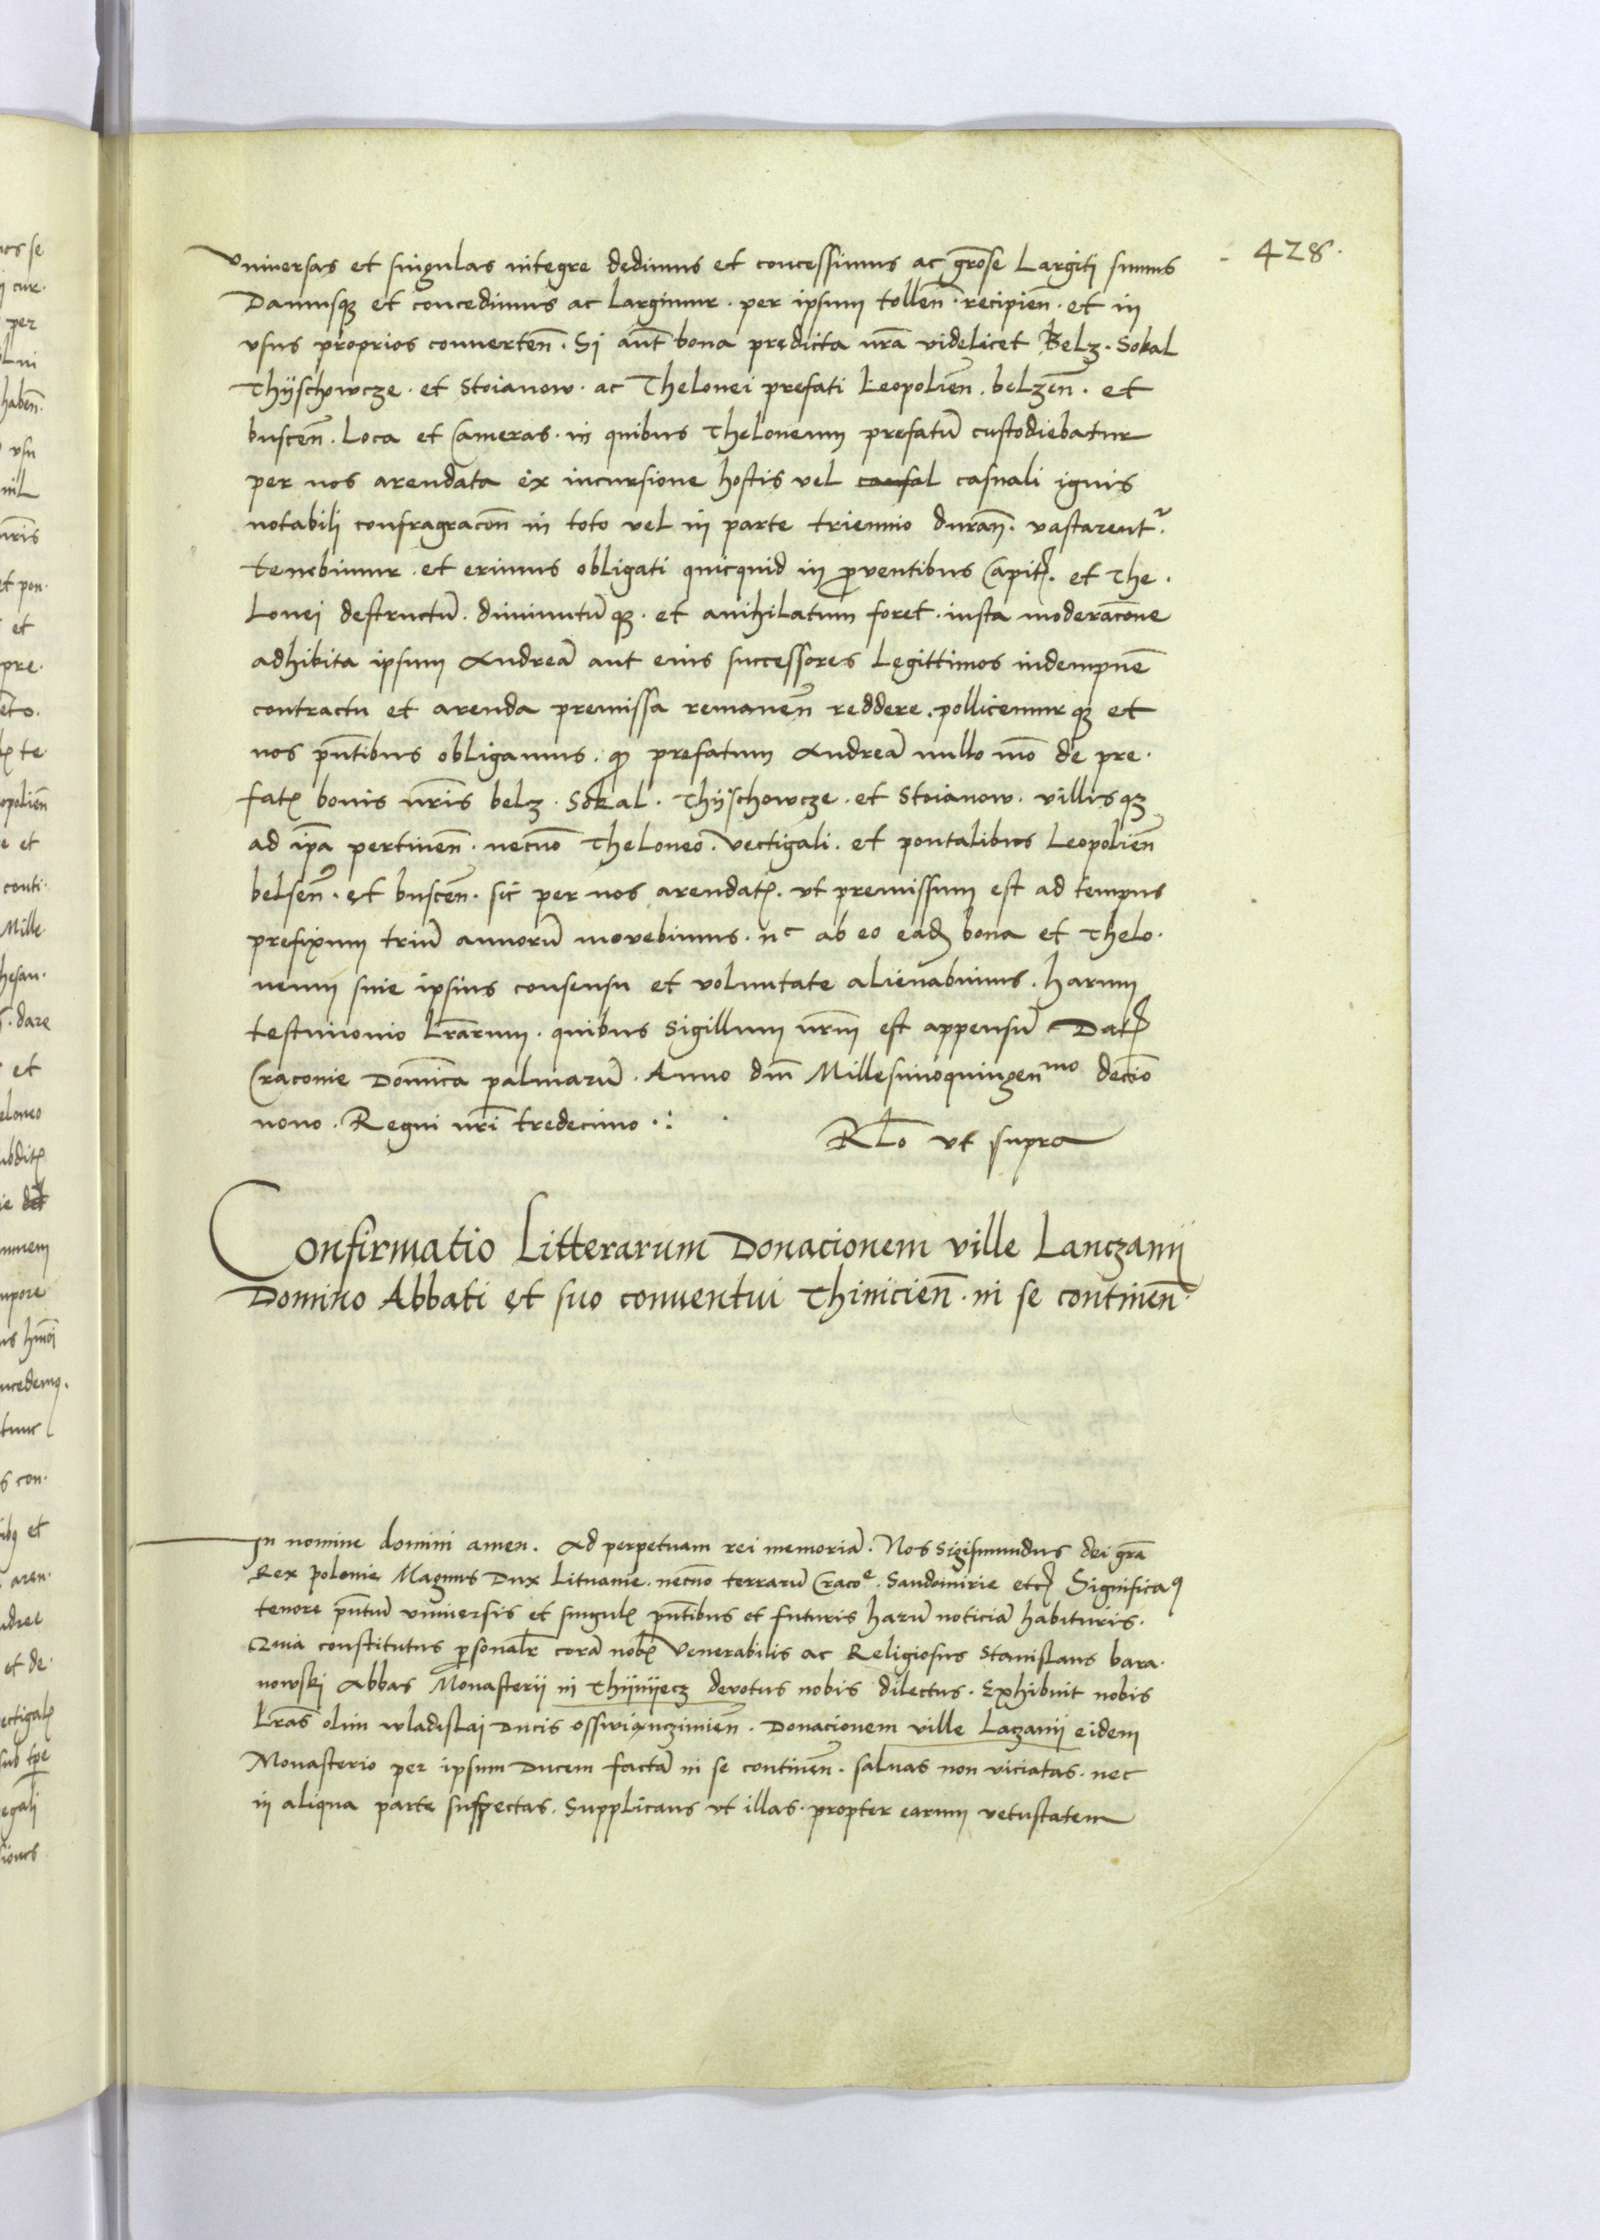 428.
Vniversas et singulas integre dedimus et concessimus ac grõse Largiti sumus
Damusqꝫ et concedimus ac Largimur. per ipsum tolleñ. recipieñ. et in
vsus proprios converteñ. Si aũt bona predicta nrã videlicet Belz. Sokal
Thÿschowcze. et Stoianow. ac Thelonei prefati Leopolieñ. belzeñ. et
busceñ. Loca et Cameras. in quibus Theloneum prefatũ custodiebatur
per nos arendata ex incursione hostis vel causal casuali ignis
notabili confragracoñ in toto vel in parte triennio durañ. vastarent.
tenebimur. et erimus obligati quicquid in proventibus Capit. et The.
Lonei destructũ. diminutũ qꝫ. et anihilatum foret. iusta moderacõne
adhibita ipsum Andreã aut eius successores Legittimos indempnẽ
contractu et arenda premissa remaneñ reddere. pollicemur qꝫ et
nos pñtibus obligamus. qꝫ prefatum Andreã nullo mõ de pre.
fatꝭ bonis nrĩs belz. Sokal. Thÿschowcze. et Stoianow. villisqꝫ
ad ip̃a pertineñ. necnõ Theloneo. vectigali. et pontalibus Leopolieñ
belseñ. et busceñ. sic per nos arendatꝭ. vt premissum est ad tempus
prefixum triũ annorũ movebimus. nc ab eo eadꝫ bona et Thelo.
neum sine ipsius consensu et voluntate alienabimus. harum
testimonio Lrãrum. quibus Sigillum nrm̃ est appensũ Datꝭ
Cracovie Domĩca palmarũ. Anno dm̃ Millesimoquingenmo decĩo
nono. Regni nrĩ tredecimo.:
RLo vt supra
Confirmatio Litterarum Donacionem ville Lanczanÿ
Domino Abbati et suo conventui Thinicieñ. in se contineñ
In nomine domini amen. Ad perpetuam rei memoriã. Nos Sigismundus dei grã
Rex polonie Magnus Dux Lituanie. necnõ terrarũ Cracoe. Sandomirie etcꝭ Significaꝰ
tenore pñtũ vniversis et singulꝭ pñtibus et futuris harũ noticiã habituris.
Quia constitutus personalr̃ corã nobꝭ Venerabilis ac Religiosus Stanislaus bara.
nowskj Abbas Monasterii in Thÿnÿecz devotus nobis dilectus. Exhibuit nobis
Lrãs olim wladislai Ducis osswiãnczimieñ. Donacionem ville Laczanÿ eidem
Monasterio per ipsum Ducem factã in se contineñ. salvas non viciatas. nec
in aliqua parte suspectas. Supplicans vt illas. propter earum vetustatem